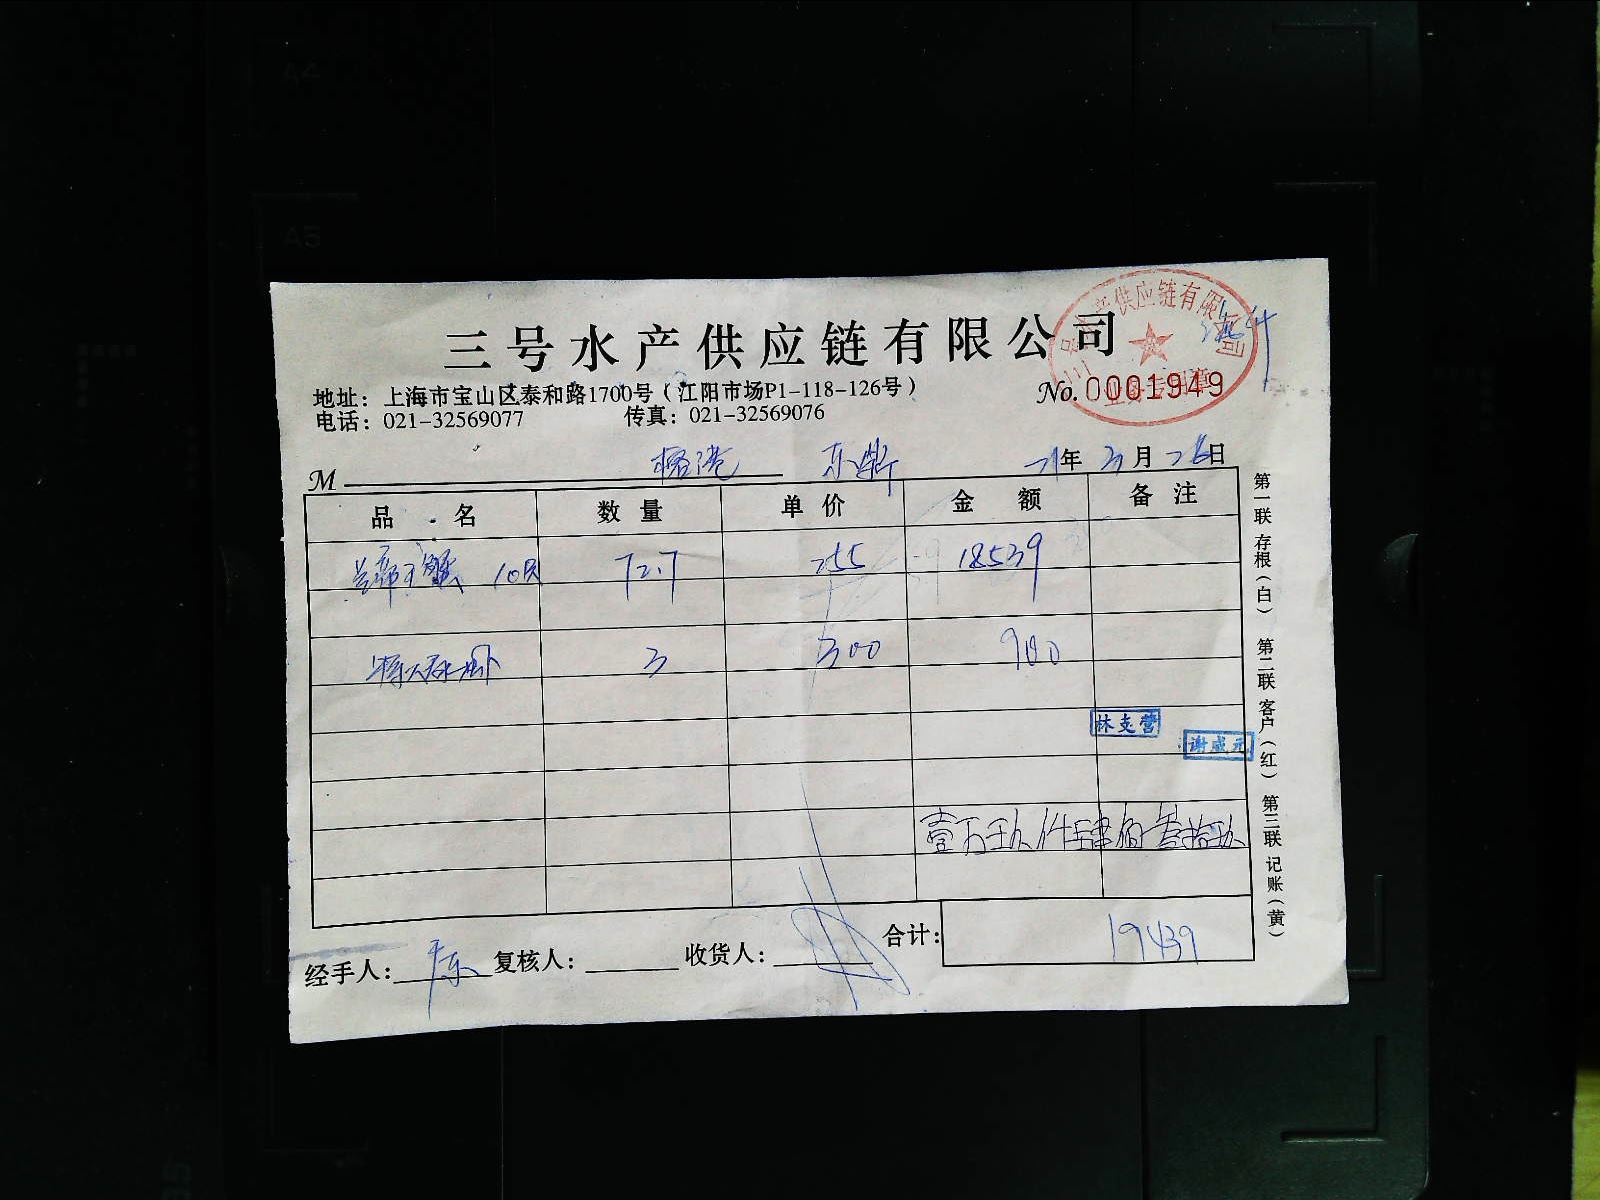 三号水产供应链有限公司
地址：上海市宝山区泰和路1700号（江阳市场P1-118-126号）
No.0001949
电话：021-32569077 传真：021-32569076
M 年 3月 26日
品名 数量 单价 金额 备注
10只 72.7 255 18539
3 300 900
林支营
谢成元
壹万玖仟肆佰叁拾玖
合计： 19439
经手人： 复核人： 收货人：
第一联 存根（白） 第二联 客户（红） 第三联 记账（黄）
产供应链有限公司
A5